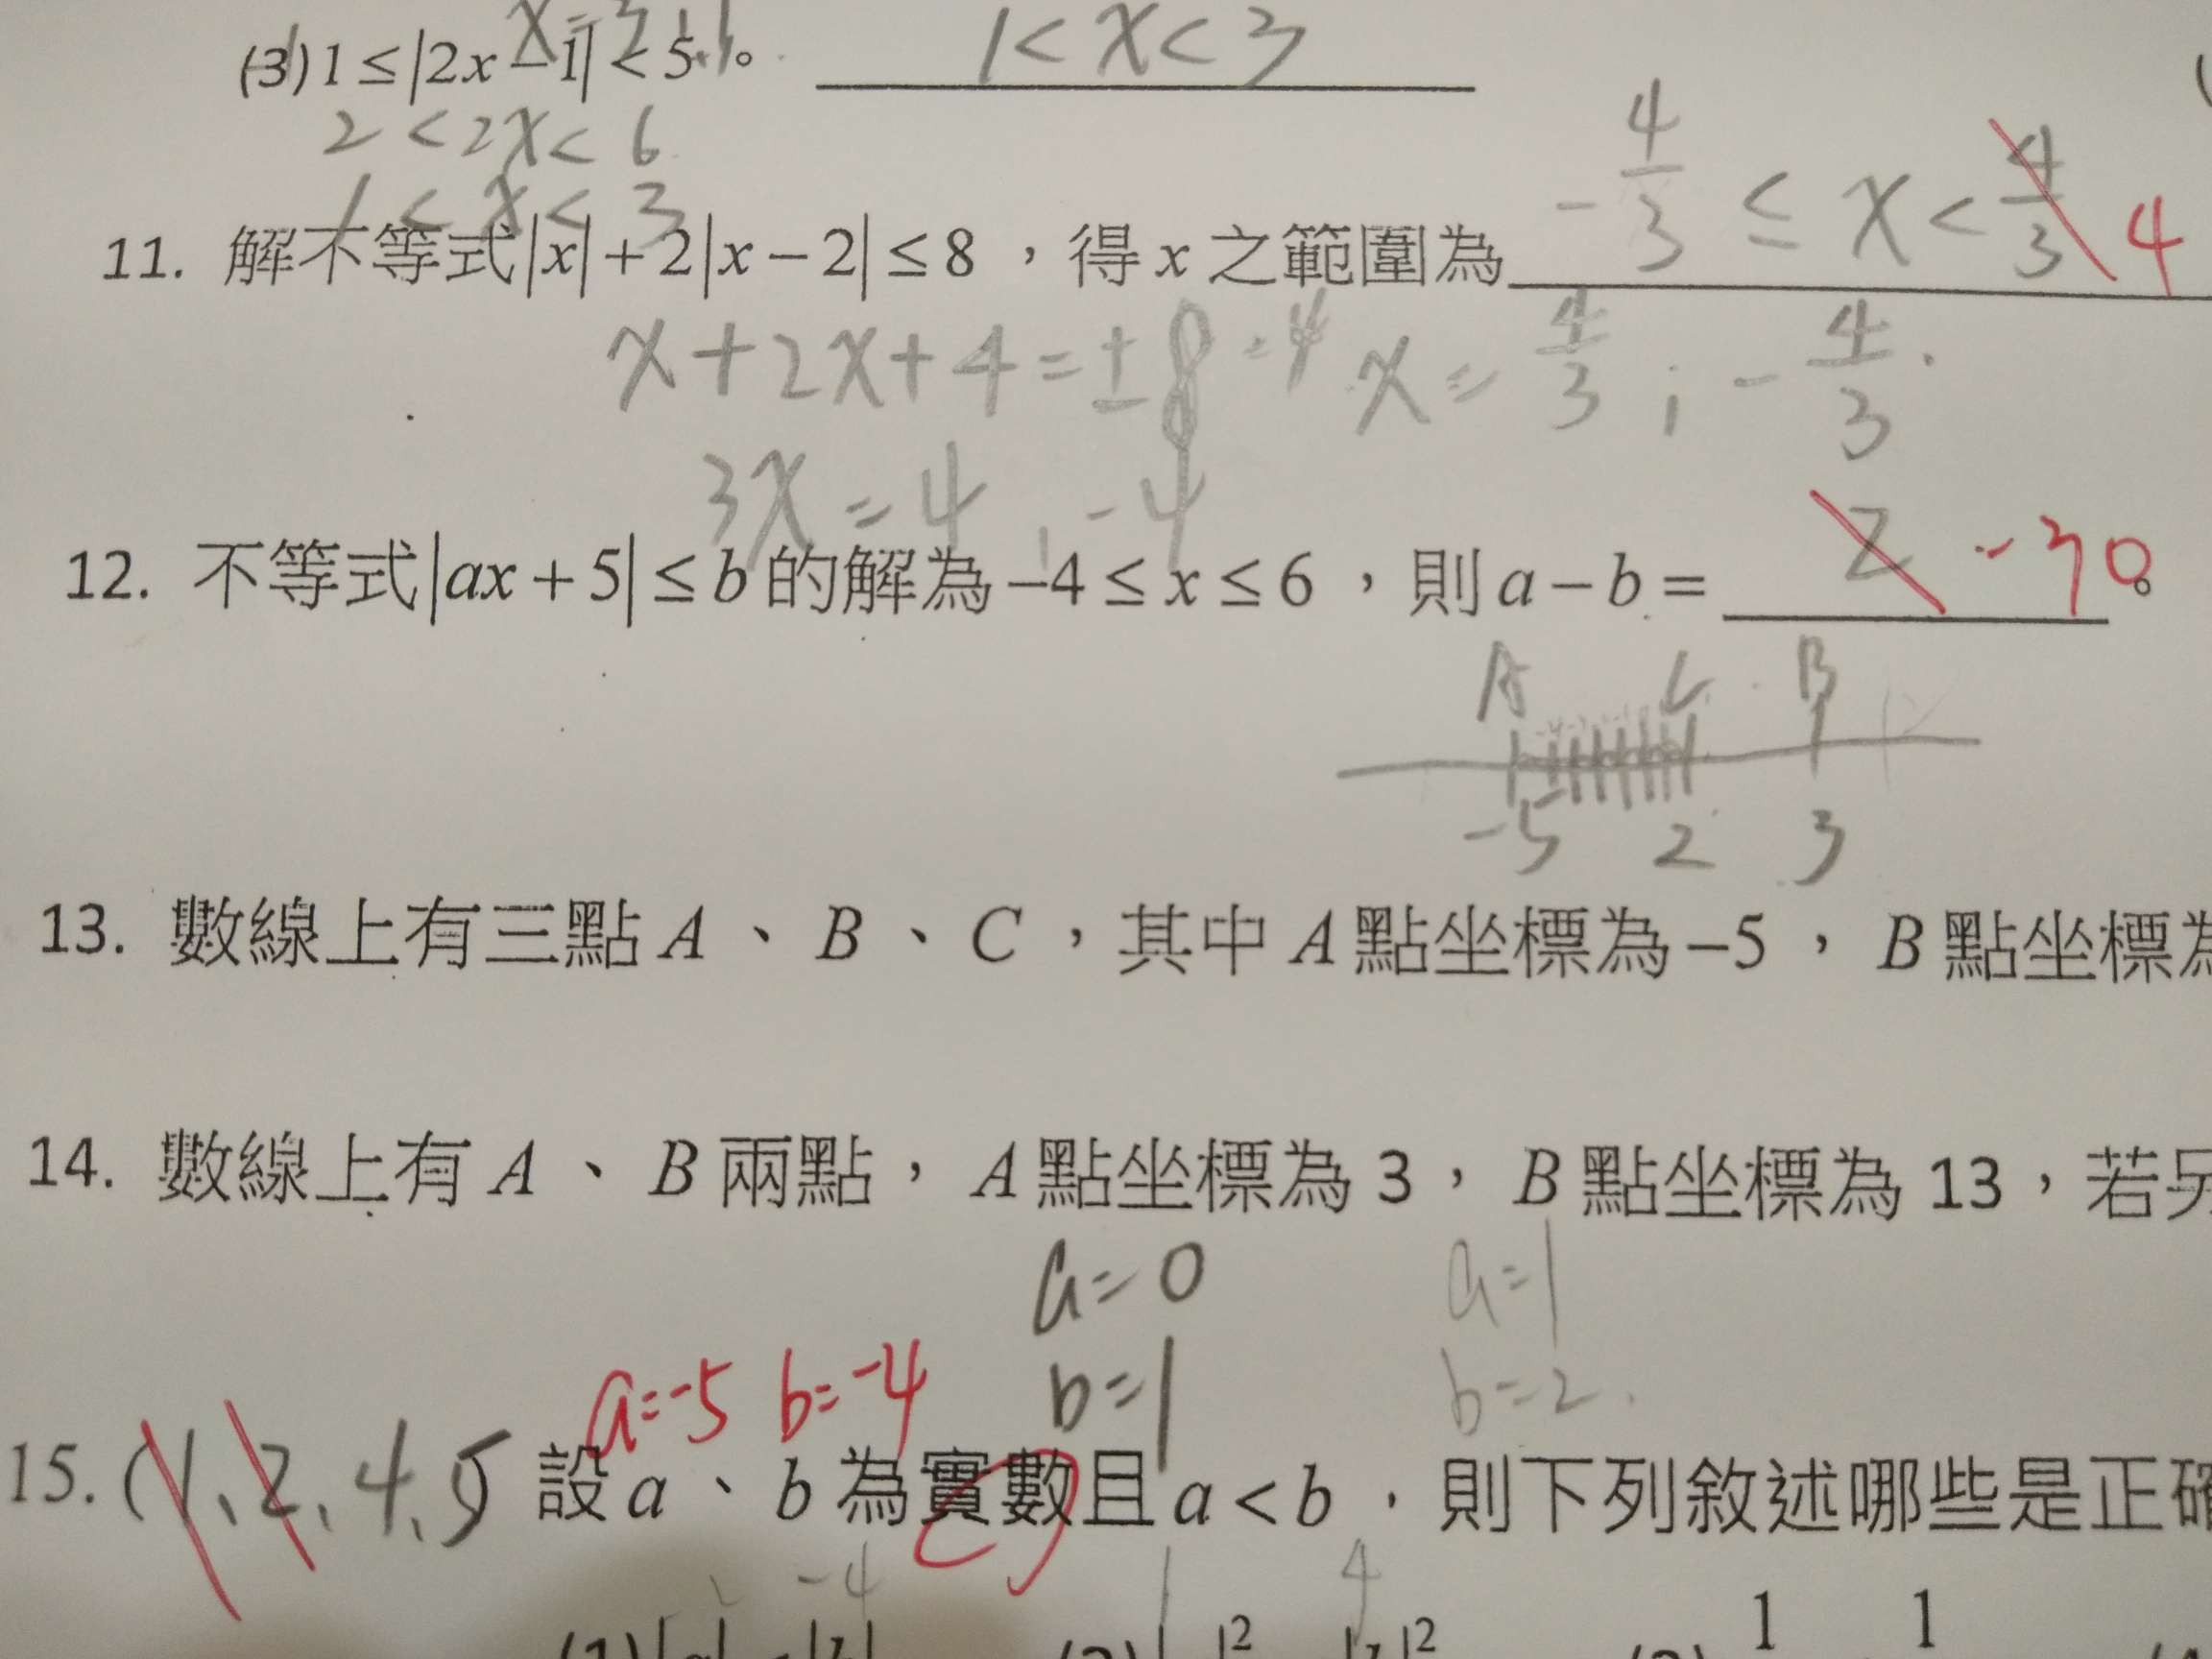 x=
(3) 1 ≤ |2x − 1| < 5。 1 < x < 3
2 < 2x < 6
1 < x < 3
11. 解不等式|x| + 2|x − 2| ≤ 8 ，得 x 之範圍為 -4/3 ≤ x < 4/3 4
x + 2x + 4 = ±8 x = 4/3 , -4/3
3x = 4 , -4
12. 不等式|ax + 5| ≤ b 的解為 −4 ≤ x ≤ 6 ，則 a − b = 2 -30。
A C B
-5 2 3
13. 數線上有三點 A 、 B 、 C ，其中 A 點坐標為 −5 ， B 點坐標為
14. 數線上有 A 、 B 兩點， A 點坐標為 3 ， B 點坐標為 13 ，若另
a=0 a=1
a=-5 b=-4 b=1 b=2
15. (1、2、4、5) 設 a 、 b 為實數且 a < b ，則下列敘述哪些是正確
-4 1 4